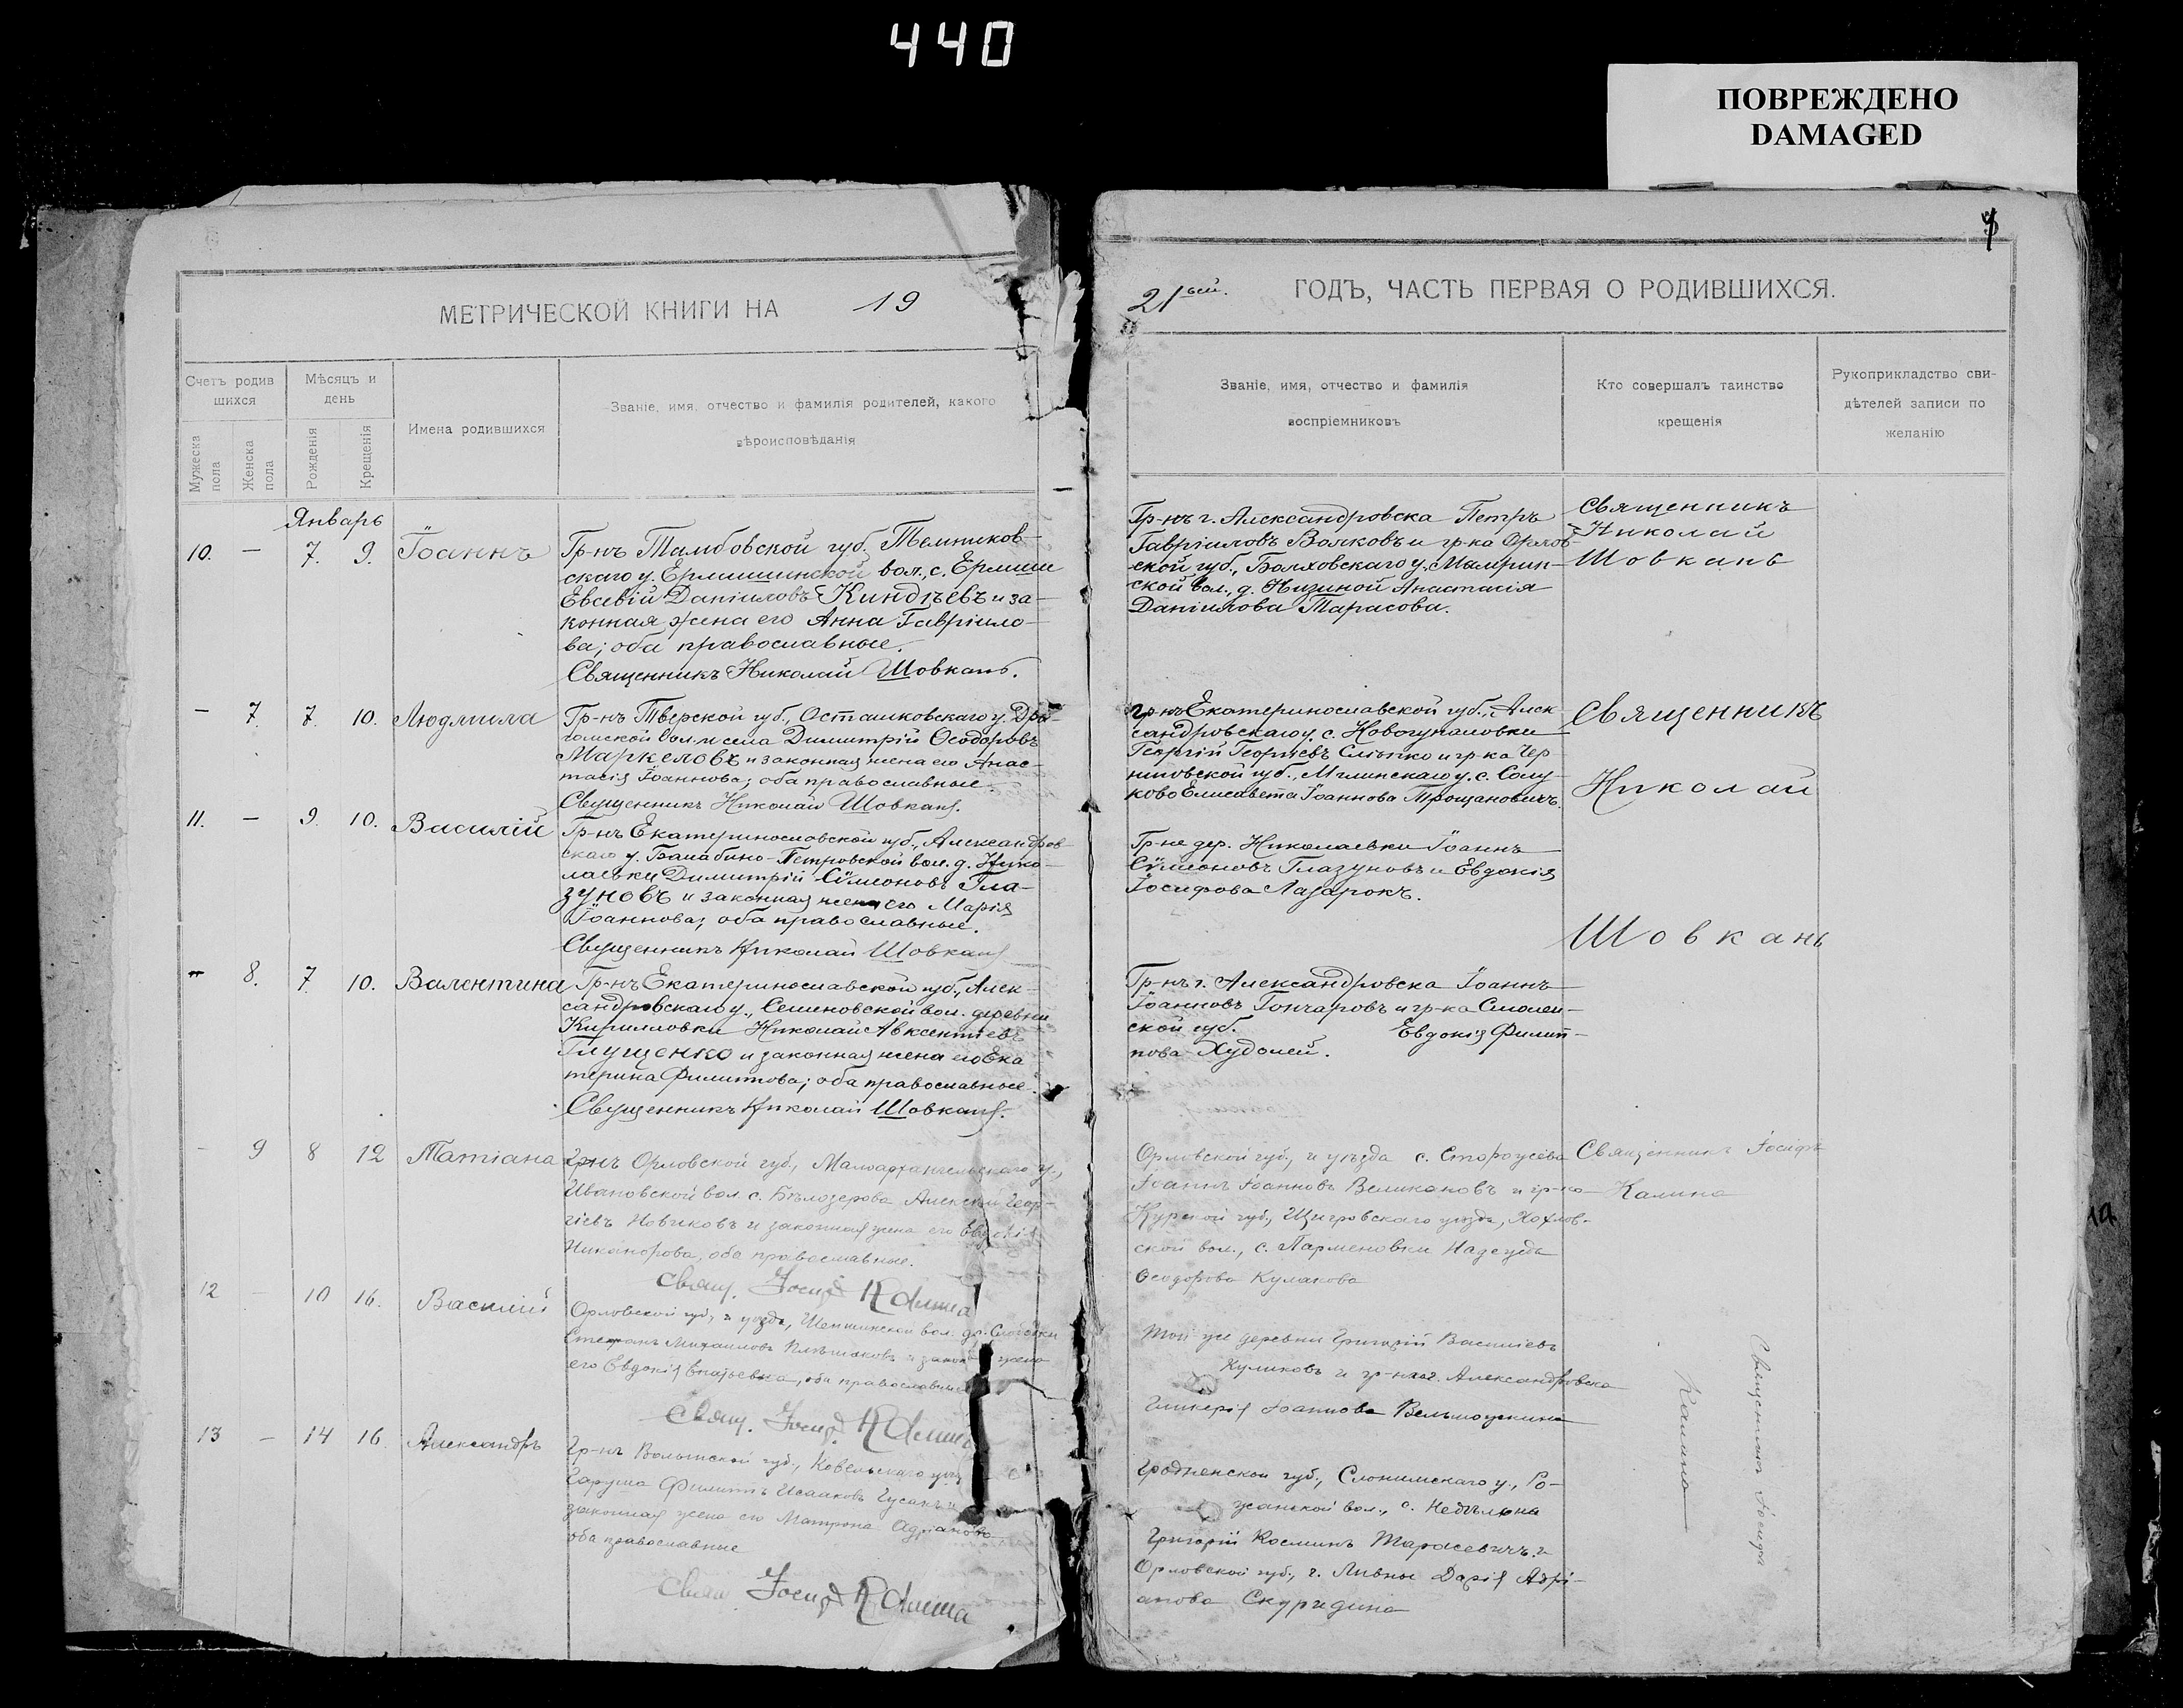 440
ПОВРЕЖДЕНО
DAMAGED
МЕТРИЧЕСКОЙ КНИГИ НА 19
Счетъ родив
шихся
Мѣсяцъ и
день
Имена родившихся
Званіе, имя, отчество и фамилія родителей, какого
вѣроисповѣданія
Мужеска
пола
Женска
пола
Рожденія
Крещенія
Январь
10. — 7. 9. Іоаннъ
Гр-нъ Тамбовской губ. Темников-
скаго у. Ермишинской вол., с. Ермиши
Евсевій Даніиловъ Киндѣевъ и за-
конная жена его Анна Гавріило-
ва; оба православные.
Священникъ Николай Шовкань.
— 7. 7. 10. Людмила
Гр-нъ Тверской губ., Осташковскаго у.
вол. и села Димитрій Ѳеодоровъ
Маркеловъ и законная жена его Анас-
тасія Іоаннова; оба православные.
Священникъ Николай Шовкань.
11. — 9. 10. Василій
Гр-нъ Екатеринославской губ., Александров
скаго у. Балабино-Петровской вол. д. Нико-
лаевки Димитрій Сѵмеоновъ Гла-
зуновъ и законная жена его Марія
Іоаннова; оба православные.
Священникъ Николай Шовкань
— 8. 7. 10. Валентина
Гр-нъ Екатеринославской губ., Алек-
сандровскаго у., Семеновской вол. деревни
Кирилловки Николай Авксентіевъ
Глущенко и законная жена его Ека
терина Филиппова; оба православные.
Священникъ Николай Шовкань.
- 9 8 12 Татіана
Гр-нъ Орловской губ., Малоархангельскаго у.,
Ивановской вол. с. Бѣлозерова Алексѣй Геор-
гіевъ Новиковъ и законная жена его Евдокія
Никанорова, оба православные.
Свящ. Іосифъ Калина
12 — 10 16. Василій
Орловской губ., и уѣзда, вол. др. Слободки
Стефанъ Михаиловъ и закон жена
его Евдокія Игнатьевна, оба православные
Свящ. Іосифъ Калина
13 — 14 16 Александръ
Гр-нъ Волынской губ., Ковельскаго уѣзд
Филиппъ Исааковъ Гусакъ и
законная жена его Матрона Адріанова
оба православные
Свящ. Іосифъ Калина
21ый. ГОДЪ, ЧАСТЬ ПЕРВАЯ О РОДИВШИХСЯ.
Званіе, имя, отчество и фамилія
воспріемниковъ
Кто совершалъ таинство
крещенія
Рукоприкладство сви-
дѣтелей записи по
желанію
Гр-нъ г. Александровска Петръ
Гавріиловъ Волковъ и гр-ка Орлов-
ской губ., Болховскаго у. Мамрин-
ской вол., д. Низиной Анастасія
Даніилова Тарасова.
Священникъ
Николай
Шовкань
гр-нъ Екатеринославской губ., Алек
сандровскаго у. с. Новогупаловки
Георгій Георгіевъ Слѣпко и гр-ка Чер
ниговской губ., Мглинскаго у. с. Солу-
ково Елисавета Іоаннова Трощановичъ.
Священникъ
Николай
Шовкань
Гр-не дер. Николаевки Іоаннъ
Сѵмеоновъ Глазуновъ и Евдокія
Іосифова Лазарокъ.
Гр-нъ г. Александровска Іоаннъ
Іоанновъ Гончаровъ и гр-ка Смолен-
ской губ. Евдокія Филип-
пова Худолей.
Орловской губ., и уѣзда с.
Іоаннъ Іоанновъ Великановъ и гр-ка
Курской губ., Щигровскаго уѣзда, Хохлов-
ской вол., с. Парменовки Надежда
Ѳеодорова Кулакова
Священникъ Іосифъ
Калина
Той же деревни Григорій Василіевъ
Куликовъ и гр-ка г. Александровска
Гликерія Іоаннова Вельможкина
Гродненской губ., Слонимскаго у., Ро-
жанской вол., с.
Григорій Косминъ Тарасевичъ и
Орловской губ., г. Ливны Дарія Адрі-
анова Скуридина
Священникъ Іосифъ
Калина